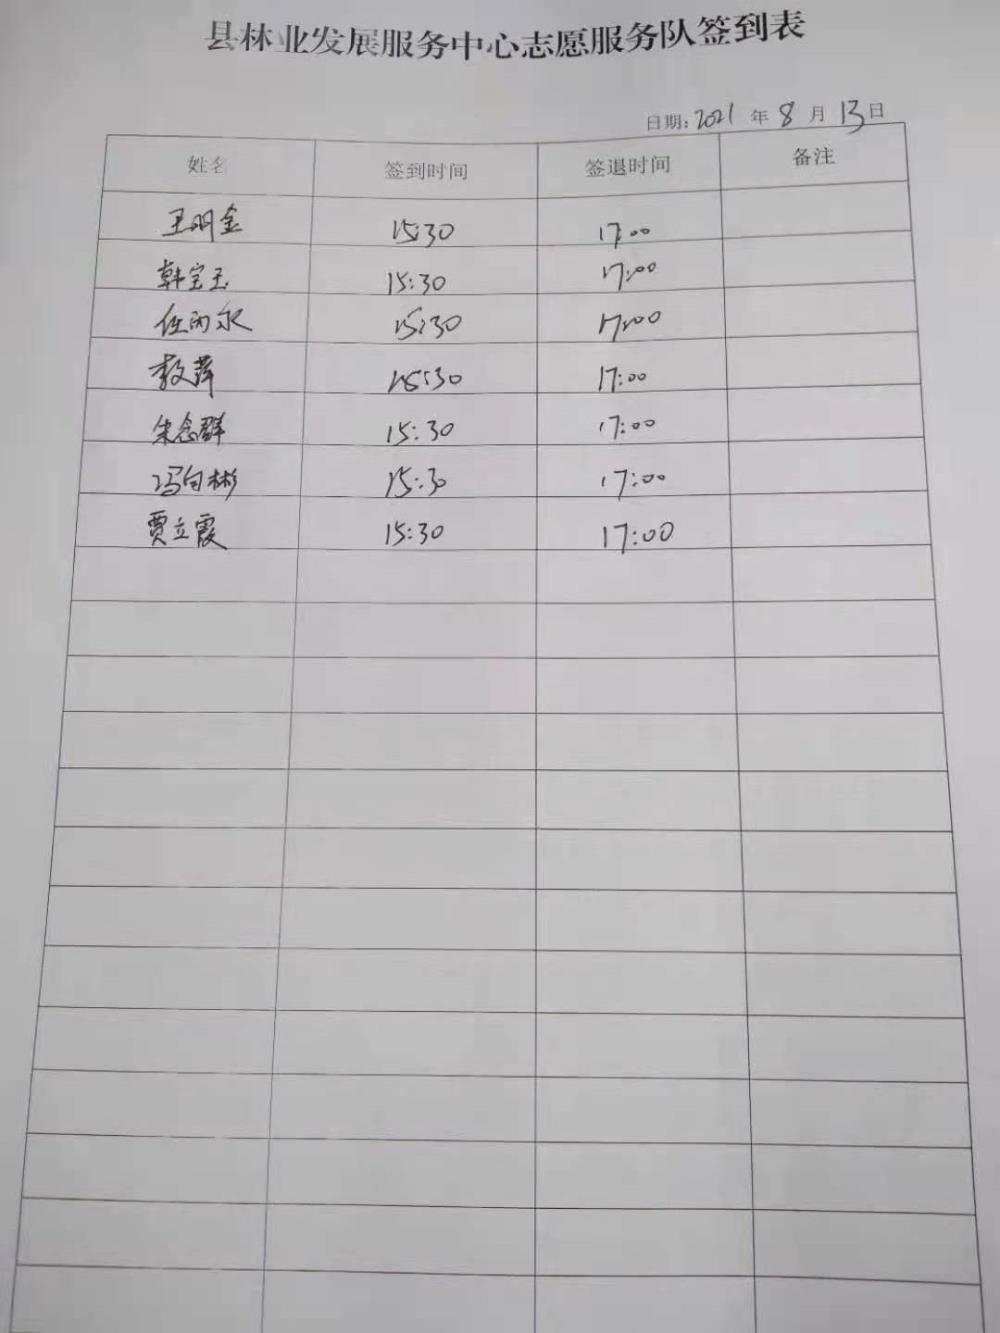 县林业发展服务中心志愿服务队签到表
日期:2021 年 8 月 13 日
姓名 签到时间 签退时间 备注
王明金 15:30 17:00
韩宝玉 15:30 17:00
任丙永 15:30 17:00
敖萍 15:30 17:00
朱念群 15:30 17:00
冯向彬 15:30 17:00
贾立霞 15:30 17:00